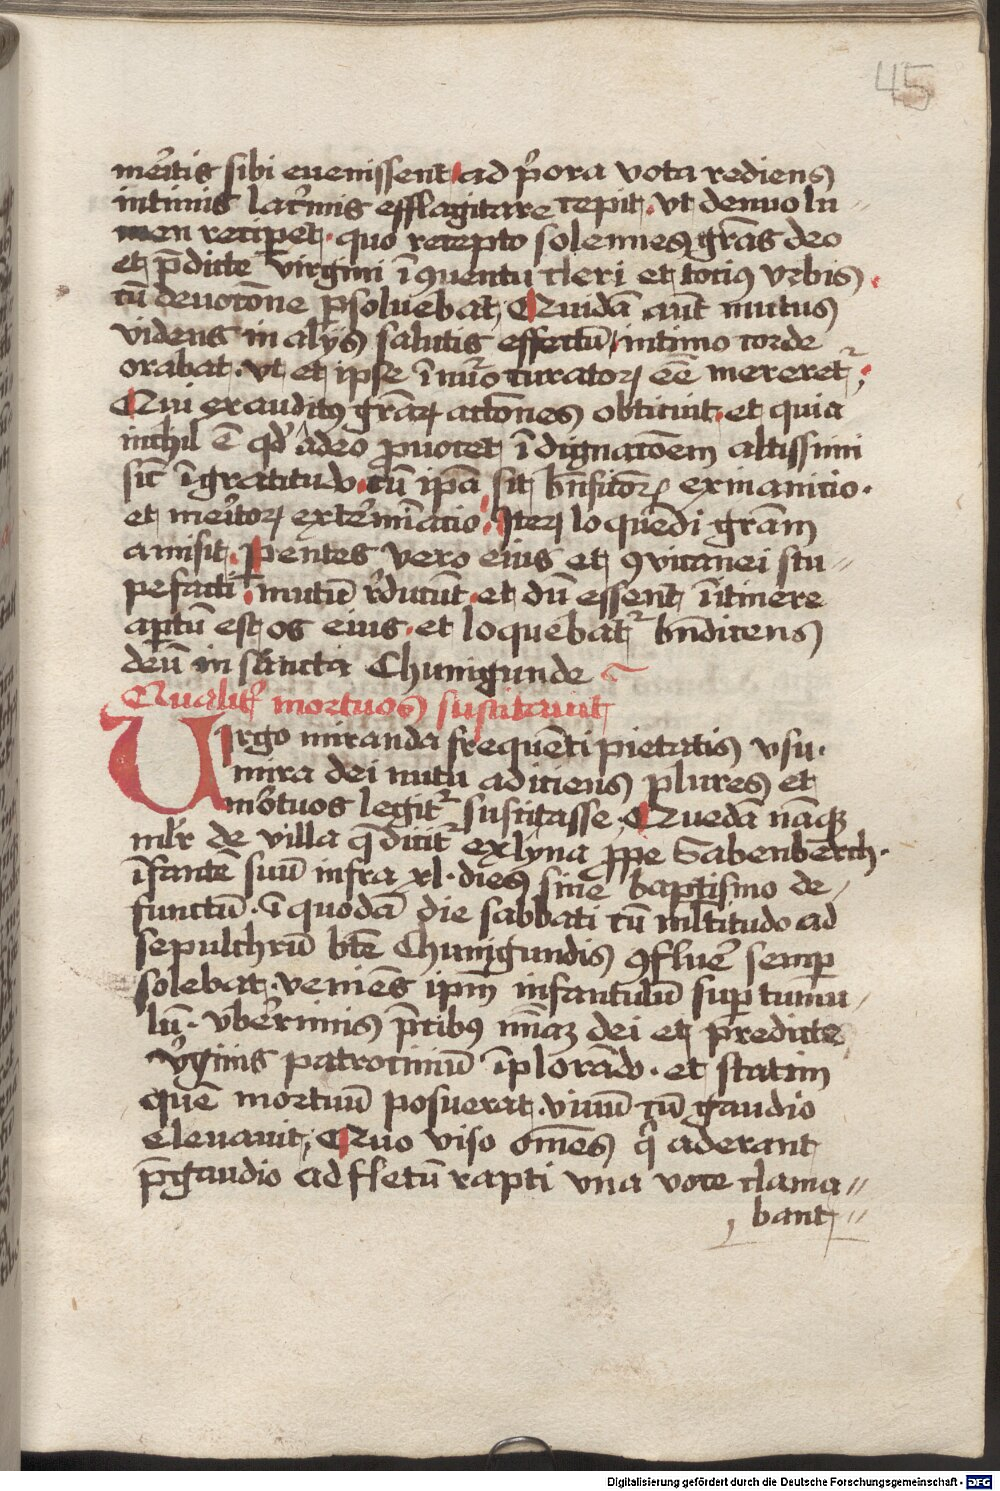 45
meritis sibi euenissent ad p̾ora vota rediens
intimis lac̾mis efflagitare cepit · vt denuo lu〃
men recip̾et · quo recepto solennes gr̄as deo
et p̄dicte virgini ī ꝯuentu cleri et totiꝰ vrbis ·
cū deuotōne p̱soluebat · Quidā aūt mutus
videns in alijs salutis effectū intimo corde
orabat · vt et ipse ī nu̾o curatoꝝ eē mereretᷣ ·
Qui exauditꝰ gr̄aꝝ actōnes obticuit · et quia
inchil ē qd̓ adeo ꝓuocet ī dignacōem altissimi
sic̄ īgratitudo cū ipā sit bn̄fitōꝝ exinanicio ·
et meritoꝝ exterminatio · Iteꝝ loquēdi gr̄am
amisit · p̱entes vero eius et ꝯuicanei stu〃
pefacti mutū r̾ducūt · et dū essent ī itinere
ap̱tū est os eius · et loquebatᷣ bn̄dicens
deū in sancta Chunigunde
Qualit̾ mortuos suscitauit
Uirgo miranda frequēti pietatis vsu ·
mira dei nutu adiciens plures et
mortuos legitᷣ suscitasse · Quedā nāqꝫ
ml̾r de villa q̄ dicitᷣ exlyna ꝓpe Babenberch ·
īfantē suū infra xl · dies sine baptismo de/
functū · ī quodā die sabbati cū ml̄titudo ad
sepulchrū btē Chunigundis ꝯfluer̄ semp̱
solebat · veniēs ip̄m infantulū sup̱ tumu/
lū · vberrimis p̄cibꝰ mīaꝫ dei et predicte
v̾gīnis patrociniū īplorādo · et statim
quē mortuū posuerat · viuū cū gaudio
eleuauit · Quo viso om̄es q̓ aderant
p̄ gaudio ad fletū rapti vna voce clama〃
bant〃
Digitalisierung gefördert durch die Deutsche Forschungsgemeinschaft - DFG